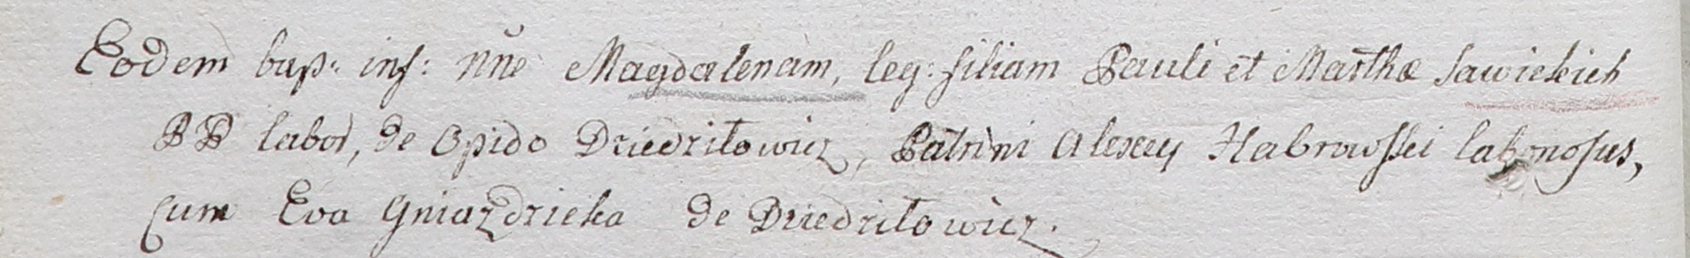 Eodem bap: inf: nne Magdalenam, leg: filiam Pauli et Marthæ Sawickich
PP labor, de Opido Dziedziłowicz, Patrini Alexey Habrowski laboriosus,
cum Eva Gniazdzicka de Dziedziłowicz.